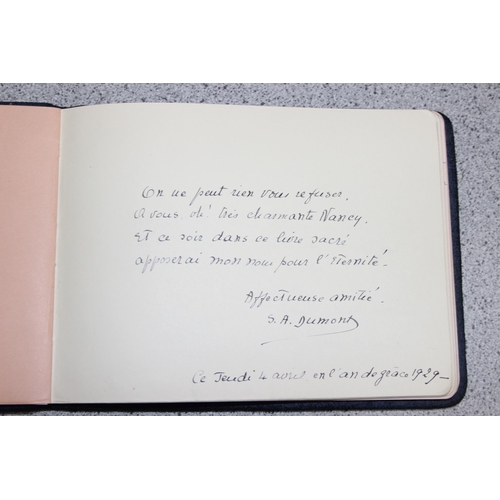 On ne peut rien vous refuser,
A vous oh! très charmante Nancy.
Et ce soir dans ce livre sacré
apposerai mon nom pour l'Eternité.
Affectueuse amitié.
S. A. Dumont
Ce Jeudi 4 avril en l'an de grâce 1929_